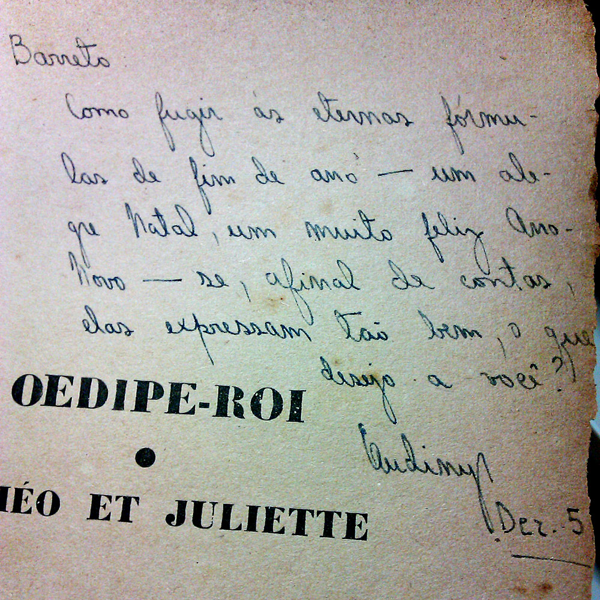 Barreto
Como fugir às eternas fórmu-
las de fim de ano — um ale-
gre Natal, um muito feliz Ano-
Novo — se, afinal de contas,
elas expressam tão bem, o que
desejo a você?
OEDIPE-ROI
•
MÉO ET JULIETTE
Dez. 5